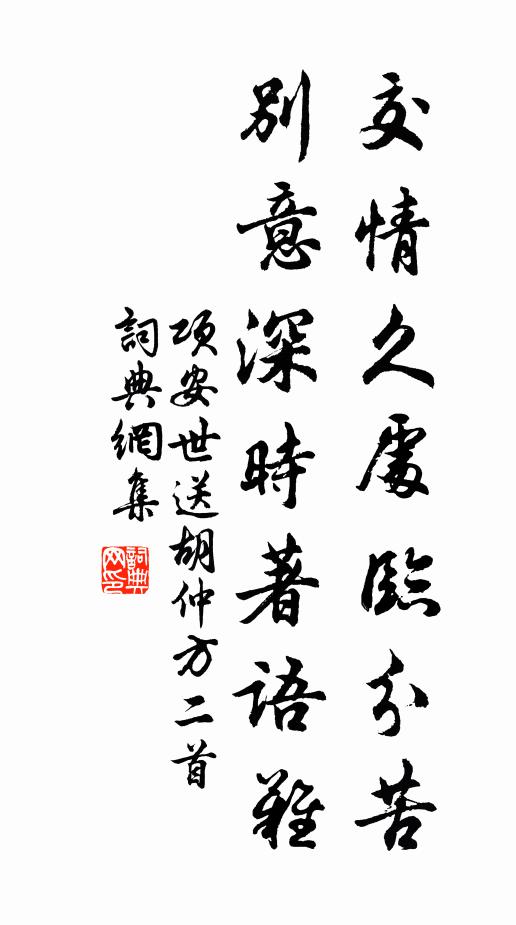 交情久處臨分苦
別意深時著語難
項安世送胡仲方二首
詞典網集
詞典网印